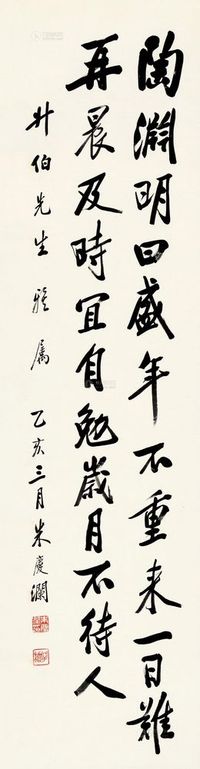 陶淵明曰盛年不重来一日難
再晨及時宜自勉歲月不待人
升伯先生雅属
乙亥三月朱慶瀾